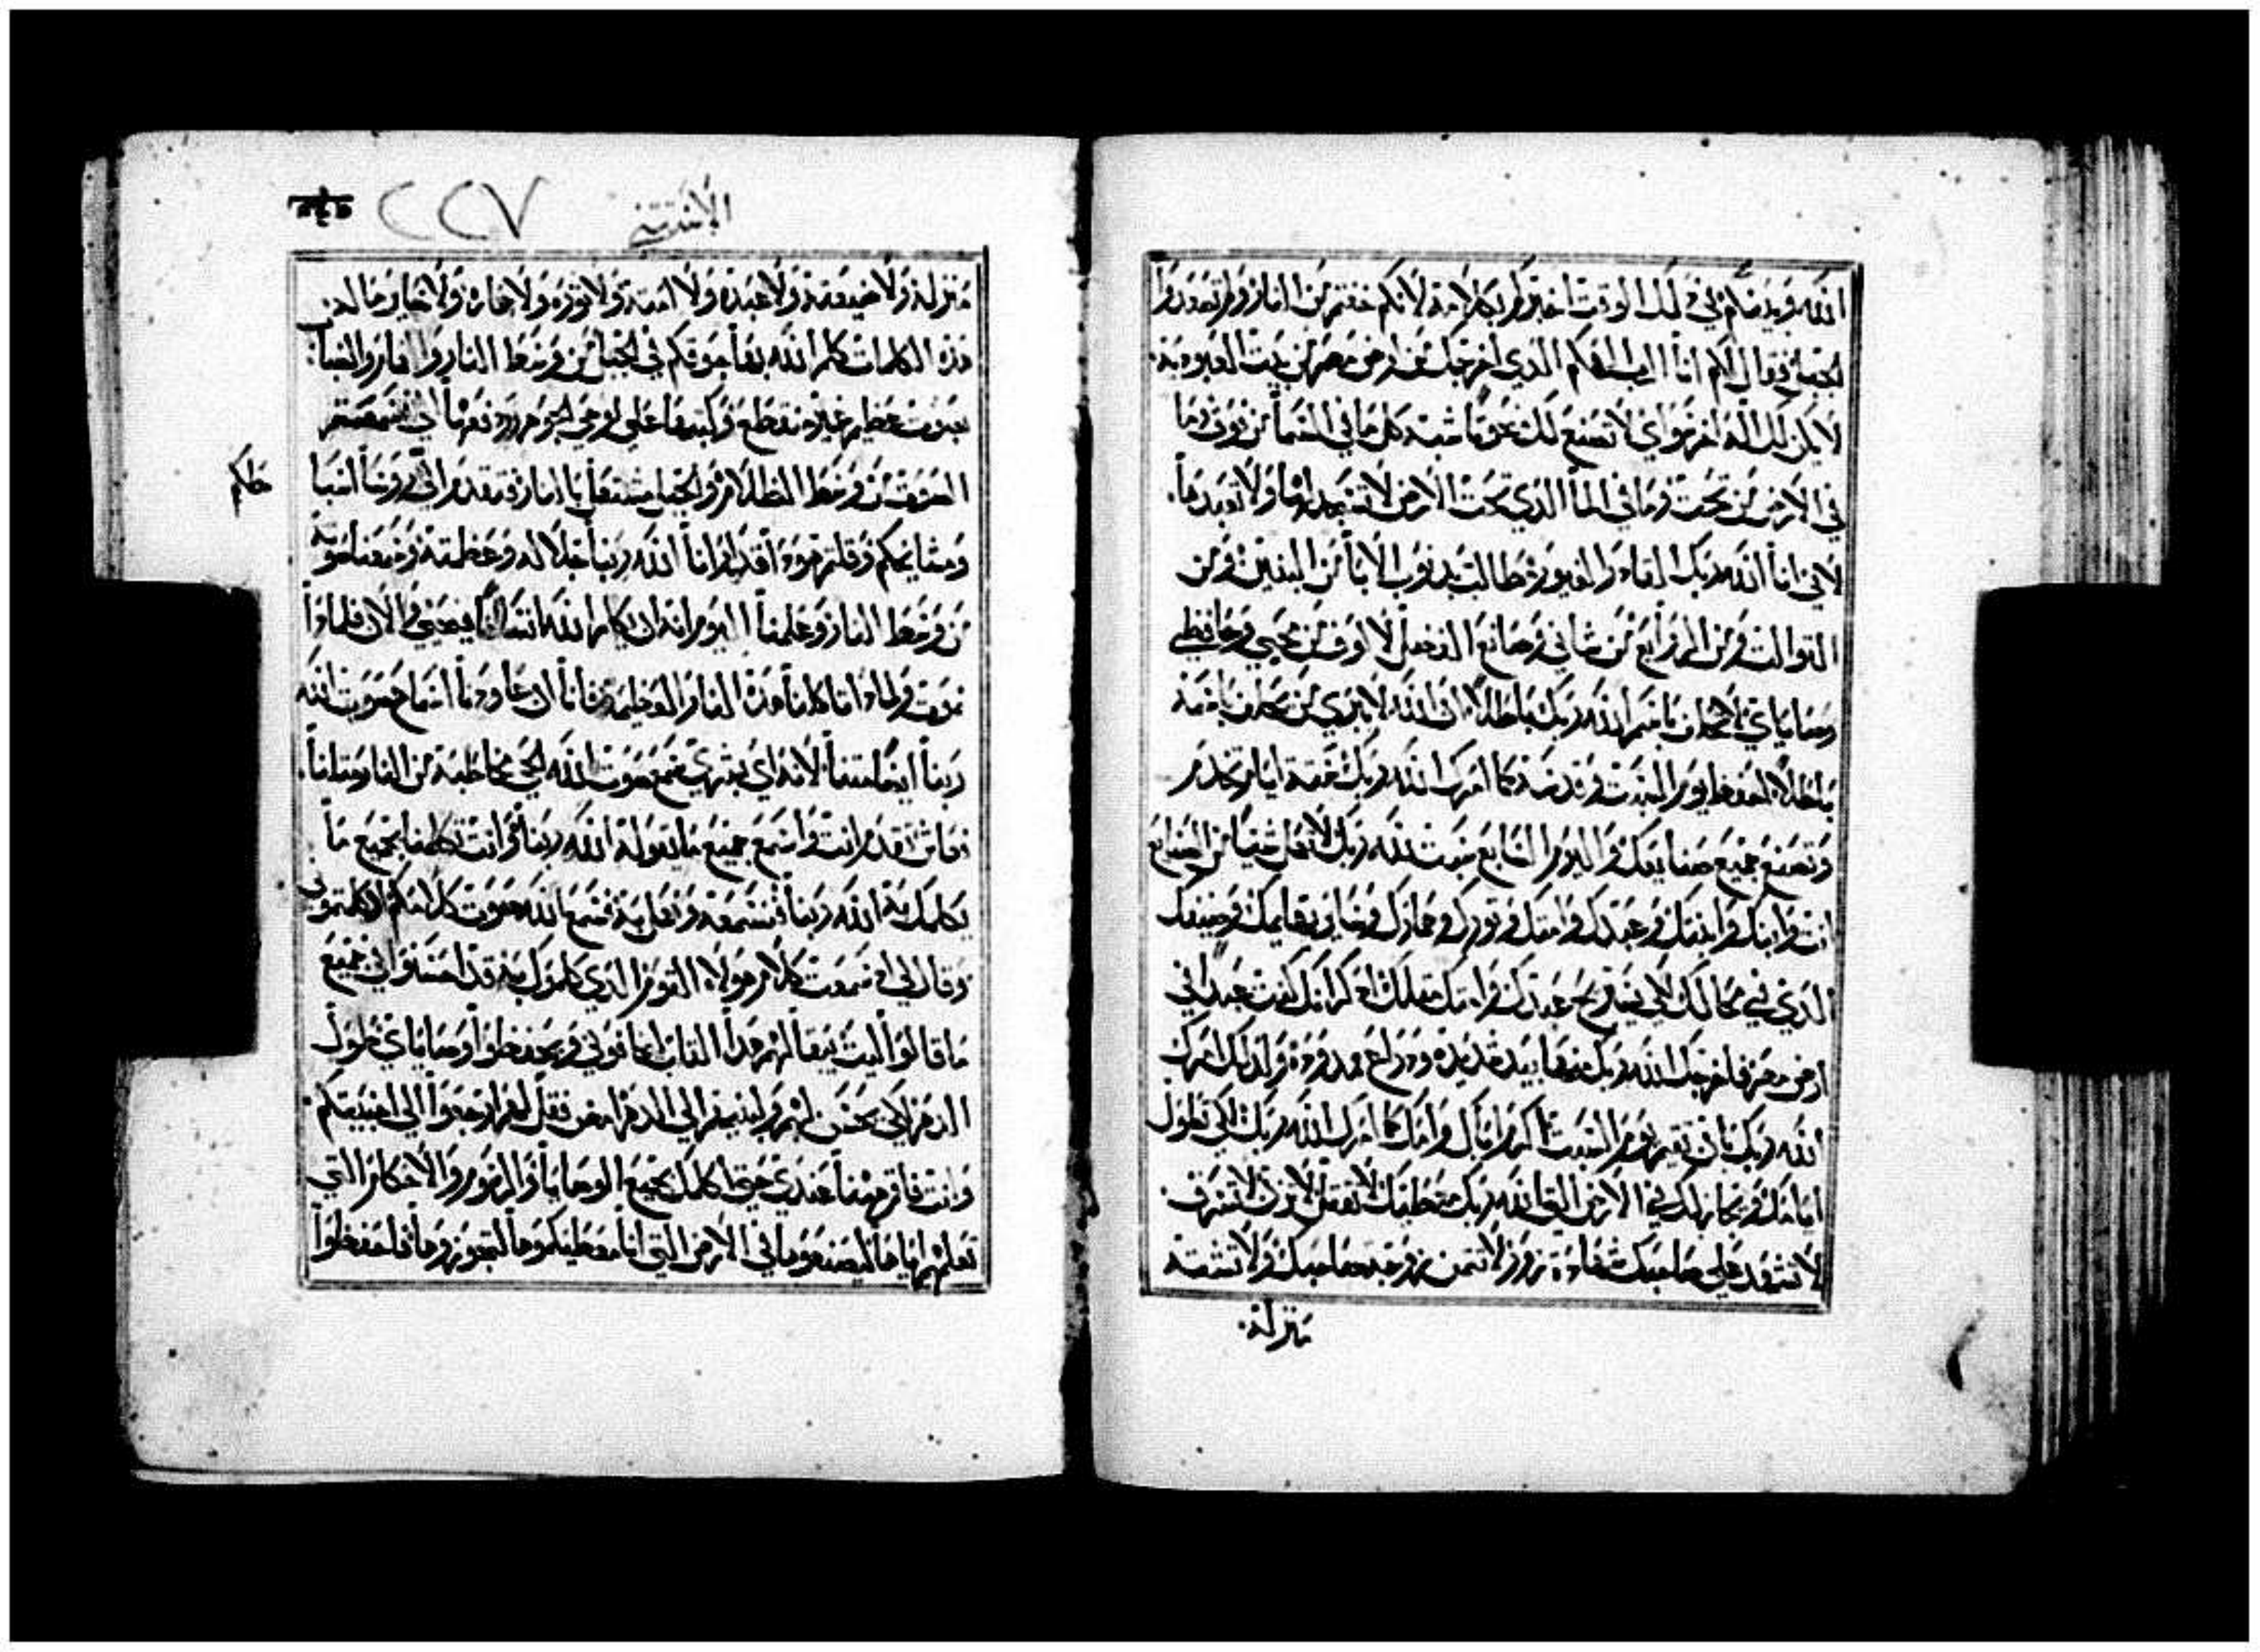 الله وبينكم في ذلك الوقت اخبركم بكلامه لانكم خفتم من النار ولم تصعدوا
الجبل فقال لكم انا الرب الهكم الذي اخرجك من ارض مصر من بيت العبودية
لا يكن لك اله اخر سواي لا تصنع لك منحوتا شبه كل ما في السما من فوق وما
في الارض من تحت وما في الما الذي تحت الارض لا تسجد لها ولا تعبدها
لاني انا الله ربك القادر الغيور مطالب بذنوب الابا من البنين ومن
الثوالث ومن الروابع من شاني وصانع الفضل لالوف من محبي وحافظي
وصاياي لا تحلف باسم الله ربك باطلا لان الله لا يبري من يحلف باسمه
باطلا احفظ يوم السبت وقدسه كما امرك الله ربك ستة ايام تخدم
وتصنع جميع صنايعك واليوم السابع سبت لله ربك لا تعمل شيا من الصنايع
انت وابنك وابنتك وعبدك وامتك وثورك وحمارك وساير بهايمك وضيفك
الذي في محالك لكي يستريح عبدك وامتك مثلك اذكر انك كنت عبدا في
ارض مصر فاخرجك الله ربك منها بيد شديدة وذراع ممدودة ولذلك امرك
الله ربك بان تقيم يوم السبت اكرم اباك وامك كما امرك الله ربك لكي تطول
ايامك في الارض التي الله ربك معطيك لا تقتل لا تزن لا تسرق
لا تشهد على صاحبك شهادة زور لا تتمن زوجة صاحبك ولا تشته
منزله
الاستثني
٢٢٧
منزله ولا ضيعته ولا عبده ولا امته ولا ثوره ولا حماره ولا جميع ماله
هذه الكلمات كلم الله بها جوقكم في الجبل من وسط النار والضباب
بصوت عظيم غير منقطع وكتبها على لوحي الجوهر ودفعهما الي فلما سمعتم
الصوت من وسط الظلام والجبل مشتعل بالنار تقدم الي روسا اسباطكم
ومشايخكم وقلتم هوذا قد ارانا الله ربنا جلاله وعظمته وسمعنا صوته
من وسط النار وعلمنا اليوم انه ان يكلم الله انسانا فيحيى والان فلماذا
نموت ولماذا تاكلنا هذه النار العظيمة فاننا ان عاودنا استماع صوت الله
ربنا ايضا متنا لانه اي بشري سمع صوت الله الحي مخاطبه من النار مثلنا
فعاش تقدم انت واسمع جميع ما يقوله الله ربنا وانت تكلمنا بجميع ما
يكلمك به الله ربنا فنسمعه ونعمل به فسمع الله صوت كلامكم اذ كلمتموني
وقال لي اني سمعت كلام هولاء القوم الذي كلموك به قد احسنوا في جميع
ما قالوا ليت يبقا لهم هذا القلب ليخافوني ويحفظوا وصاياي طول
الدهر لكي يحسن لهم ولبنيهم الى الدهر امض فقل لهم ارجعوا الى اخبيتكم
وانت فاقم ههنا عندي حتى اكلمك بجميع الوصايا والرسوم والاحكام التي
تعلمهم اياها ليصنعوها في الارض التي انا معطيكموها لتحوزوها فاحفظوا